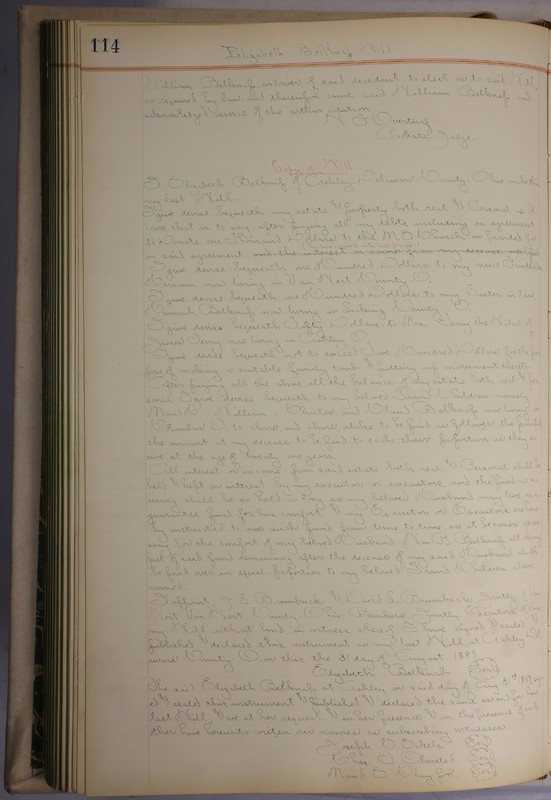 114
Elizabeth Belknap Will
William Belknap widower of said decedent to elect as to said Will,
as required by law and thereupon came said William Belknap and
acknowledged service of the within citation
N Overturf
Probate Judge
Copy of Will
I Elizabeth Belknap of Ashley Delaware County Ohio make this
my last Will.
I give devise bequeath my estate & property both real & Personal as
that is to say after paying all my debts including an agreement
to donate one Thousand Dollars to the M.E. Church as printed
in said agreement and the interest on same from my decease
I give devise bequeath one Hundred Dollars to my niece
Harmon now living in Van Wert County O.
I give devise bequeath one Hundred Dollars to my Sister in law
Hannah Belknap now living in Licking County, O
I give devise bequeath Fifty Dollars to Mrs. the Widow of
James now living in Ashley O.
I give devise bequeath not to exceed Five Hundred Dollars for the pur
pose of making a suitable family tomb & putting up monument
After paying all the above all the balance of my estate both real & Per
sonal I give devise bequeath to my beloved Grand Children namely
Maud William Charles and Belknap now living in
Columbus O. to share and share alike to be paid as follows the
the amount at my decease to be paid to each their proportion as they
arrive at the age of twenty one years.
All interest & income from said estate both real & Personal shall be
held & kept on interest by my executor or executors, and the fund
shall be so held as long as my beloved Husband may live as a
guarantee fund for his comfort & my Executor or Executors are here
by instructed to use such fund from time to time as it becomes neces
sary for the comfort of my beloved Husband Wm B. Belknap, all or any
part of said fund remaining after the decease of my said Husband shall
be paid over in equal proportion to my beloved Grand Children above
named
I appoint J S Brumback & David L Brumback Jointly of Van
Wert Van Wert County Ohio Bankers Jointly Executors of this
my Will without bond in witness whereof I have signed & sealed &
published & declared this instrument as my last Will, at Ashley Del
aware County O. on this the 31 day of August 1887
Elizabeth Belknap Seal
The said Elizabeth Belknap at Ashley on said day of Aug 31st 1887
& sealed this instrument & published & declared the same as and for her
last Will & we at her request & in her presence & in the presence of each
other have hereunto written our names as subscribing witnesses
Joseph Seal
Chas Olmsted Seal
Seal